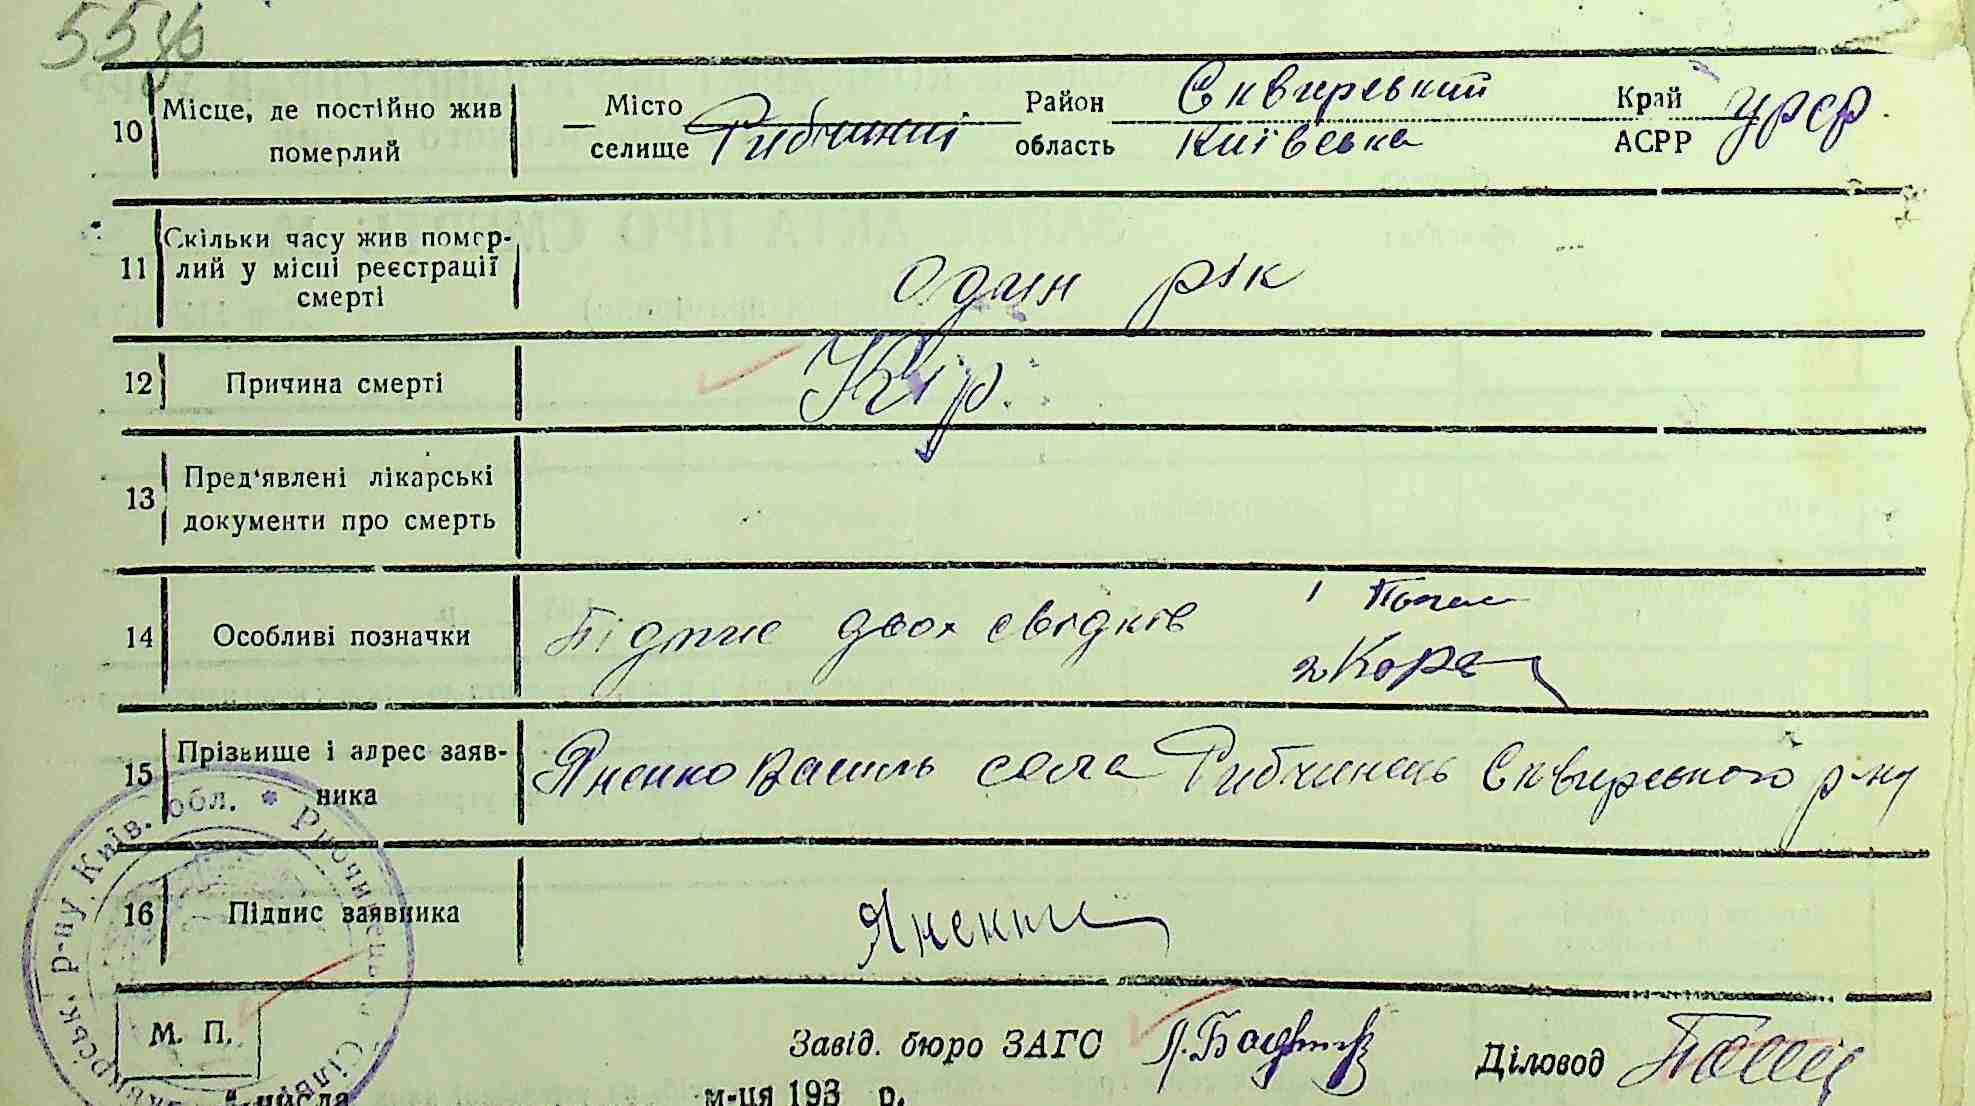 10 Місце, де постійно жив померлий Місто селище Рибчинці Район область Сквирський Київська Край АСРР УРСР.
11 Скільки часу жив помер-
лий у місці реєстрації
смерті
один рік
12 Причина смерті Кір.
13 Пред'явлені лікарські
документи про смерть
14 Особливі позначки Підпис двох свідків 1
2 Коре
15 Прізвище і адрес заяв-
ника
Яненко Василь села Рибчинець Сквирського р-ну
16 Підпис заявника Яненко
р-ну Київ. обл. * Рибчинецька Сільр
М. П.
Завід. бюро ЗАГС Діловод
числа м-ця 193 р.